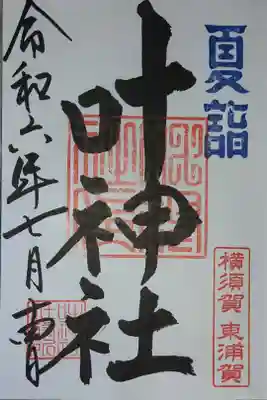 夏詣
横須賀 東浦賀
叶神社
令和六年七月吉日